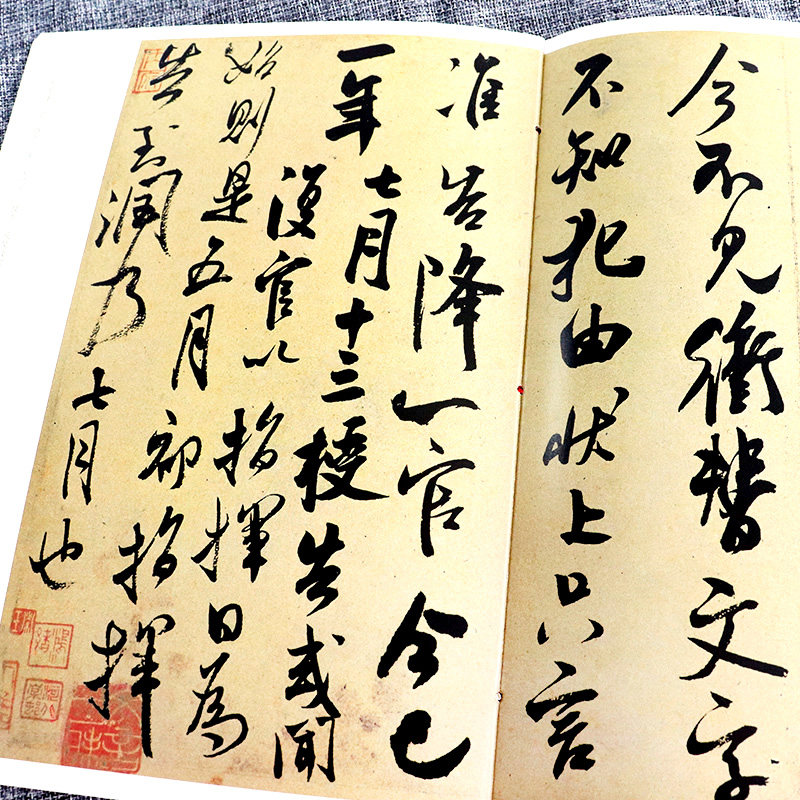 今不见衝替文字
不知犯由状上只言
准告降一官今已
一年七月十三授告或闻
復官以指揮日為
始則是五月初指揮
告玉潤乃七月也